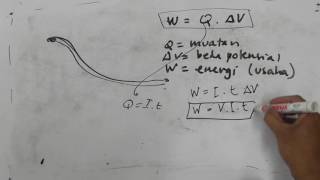 W = Q . ΔV
Q = muatan
ΔV = beda potensial
W = energi (usaha)
Q = I . t
W = I . t ΔV
W = V . I . t